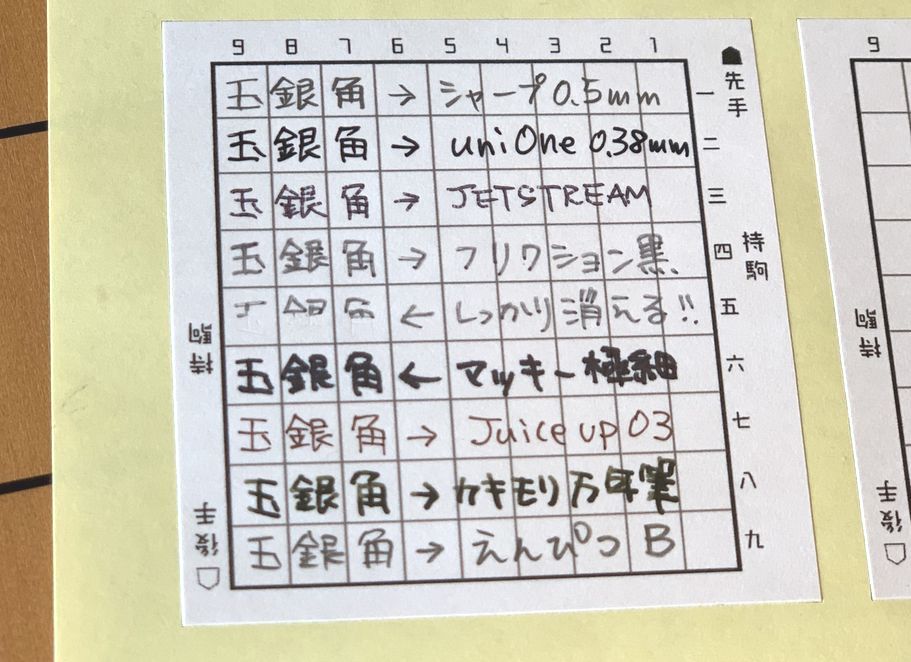 9 8 7 6 5 4 3 2 1
☗先手
玉 銀 角 → シャープ 0.5mm 一
玉 銀 角 → uni One 0.38mm 二
玉 銀 角 → JETSTREAM 三
持駒
玉 銀 角 → フリクション黒 四
玉 銀 角 ← しっかり消える!! 五
玉 銀 角 ← マッキー極細 六
玉 銀 角 → Juice up 03 七
玉 銀 角 → カキモリ万年筆 八
玉 銀 角 → えんぴつ B 九
☖後手
持駒
9
☖後手
持駒